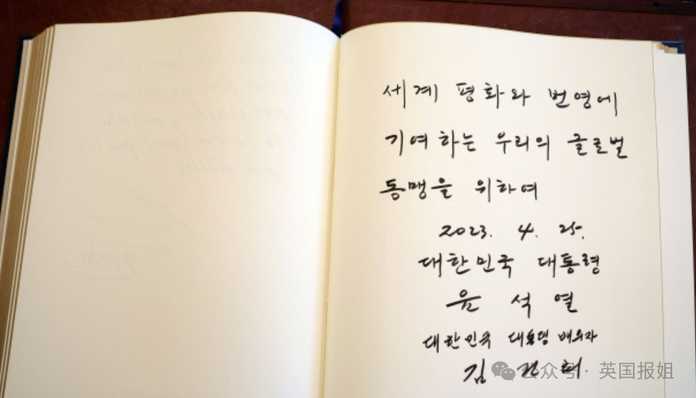 세계 평화와 번영에
기여하는 우리의 글로벌
동맹을 위하여
2023. 4. 25.
대한민국 대통령
윤 석 열
대한민국 대통령 배우자
김 건 희
公众号 · 英国报姐